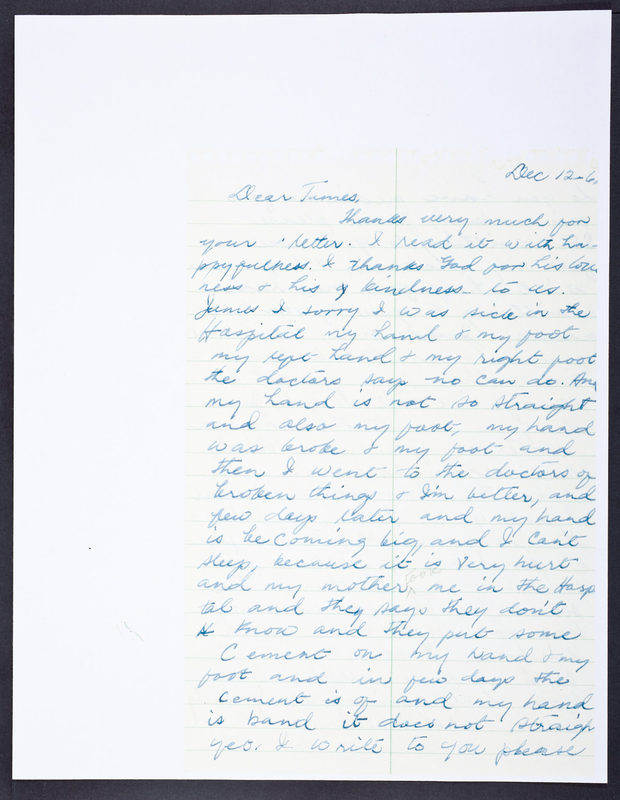 Dec 12-6
Dear Tumes,
Thanks very much for
your letter. I read it with ha-
ppyfulness. I thanks God for his lov
ness & his kindness to us.
James I sorry I was sick in the
Hospital my hand & my foot
my left hand & my right foot
the doctors says no can do. And
my hand is not so straight
and also my foot, my hand
was broke & my foot and
then I went to the doctors of
broken things & I'm better, and
few days later and my hand
is becoming big, and I can't
sleep, because it is very hurt
and my mother took me in the Hosp
tal and they says they don't
know and they put some
Cement on my hand & my
foot and in few days the
cement is of and my hand
is band it does not straigh
yeo. I write to you please